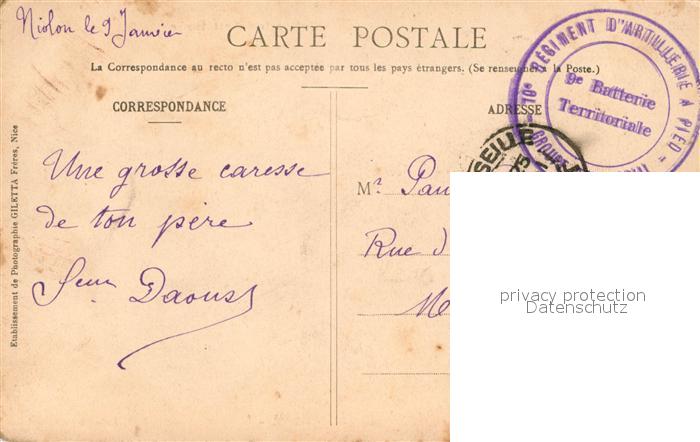 Niolon le 9 Janvier
CARTE POSTALE
La Correspondance au recto n'est pas acceptée par tous les pays étrangers. (Se renseigner à la Poste.)
CORRESPONDANCE
ADRESSE
Une grosse caresse
de ton père
Daoust
Mr
Rue
Etablissement de Photographie GILETTA Frères, Nice
RÉGIMENT D'ARTILLERIE A PIED
9e Batterie
Territoriale
GROUPE
privacy protection
Datenschutz